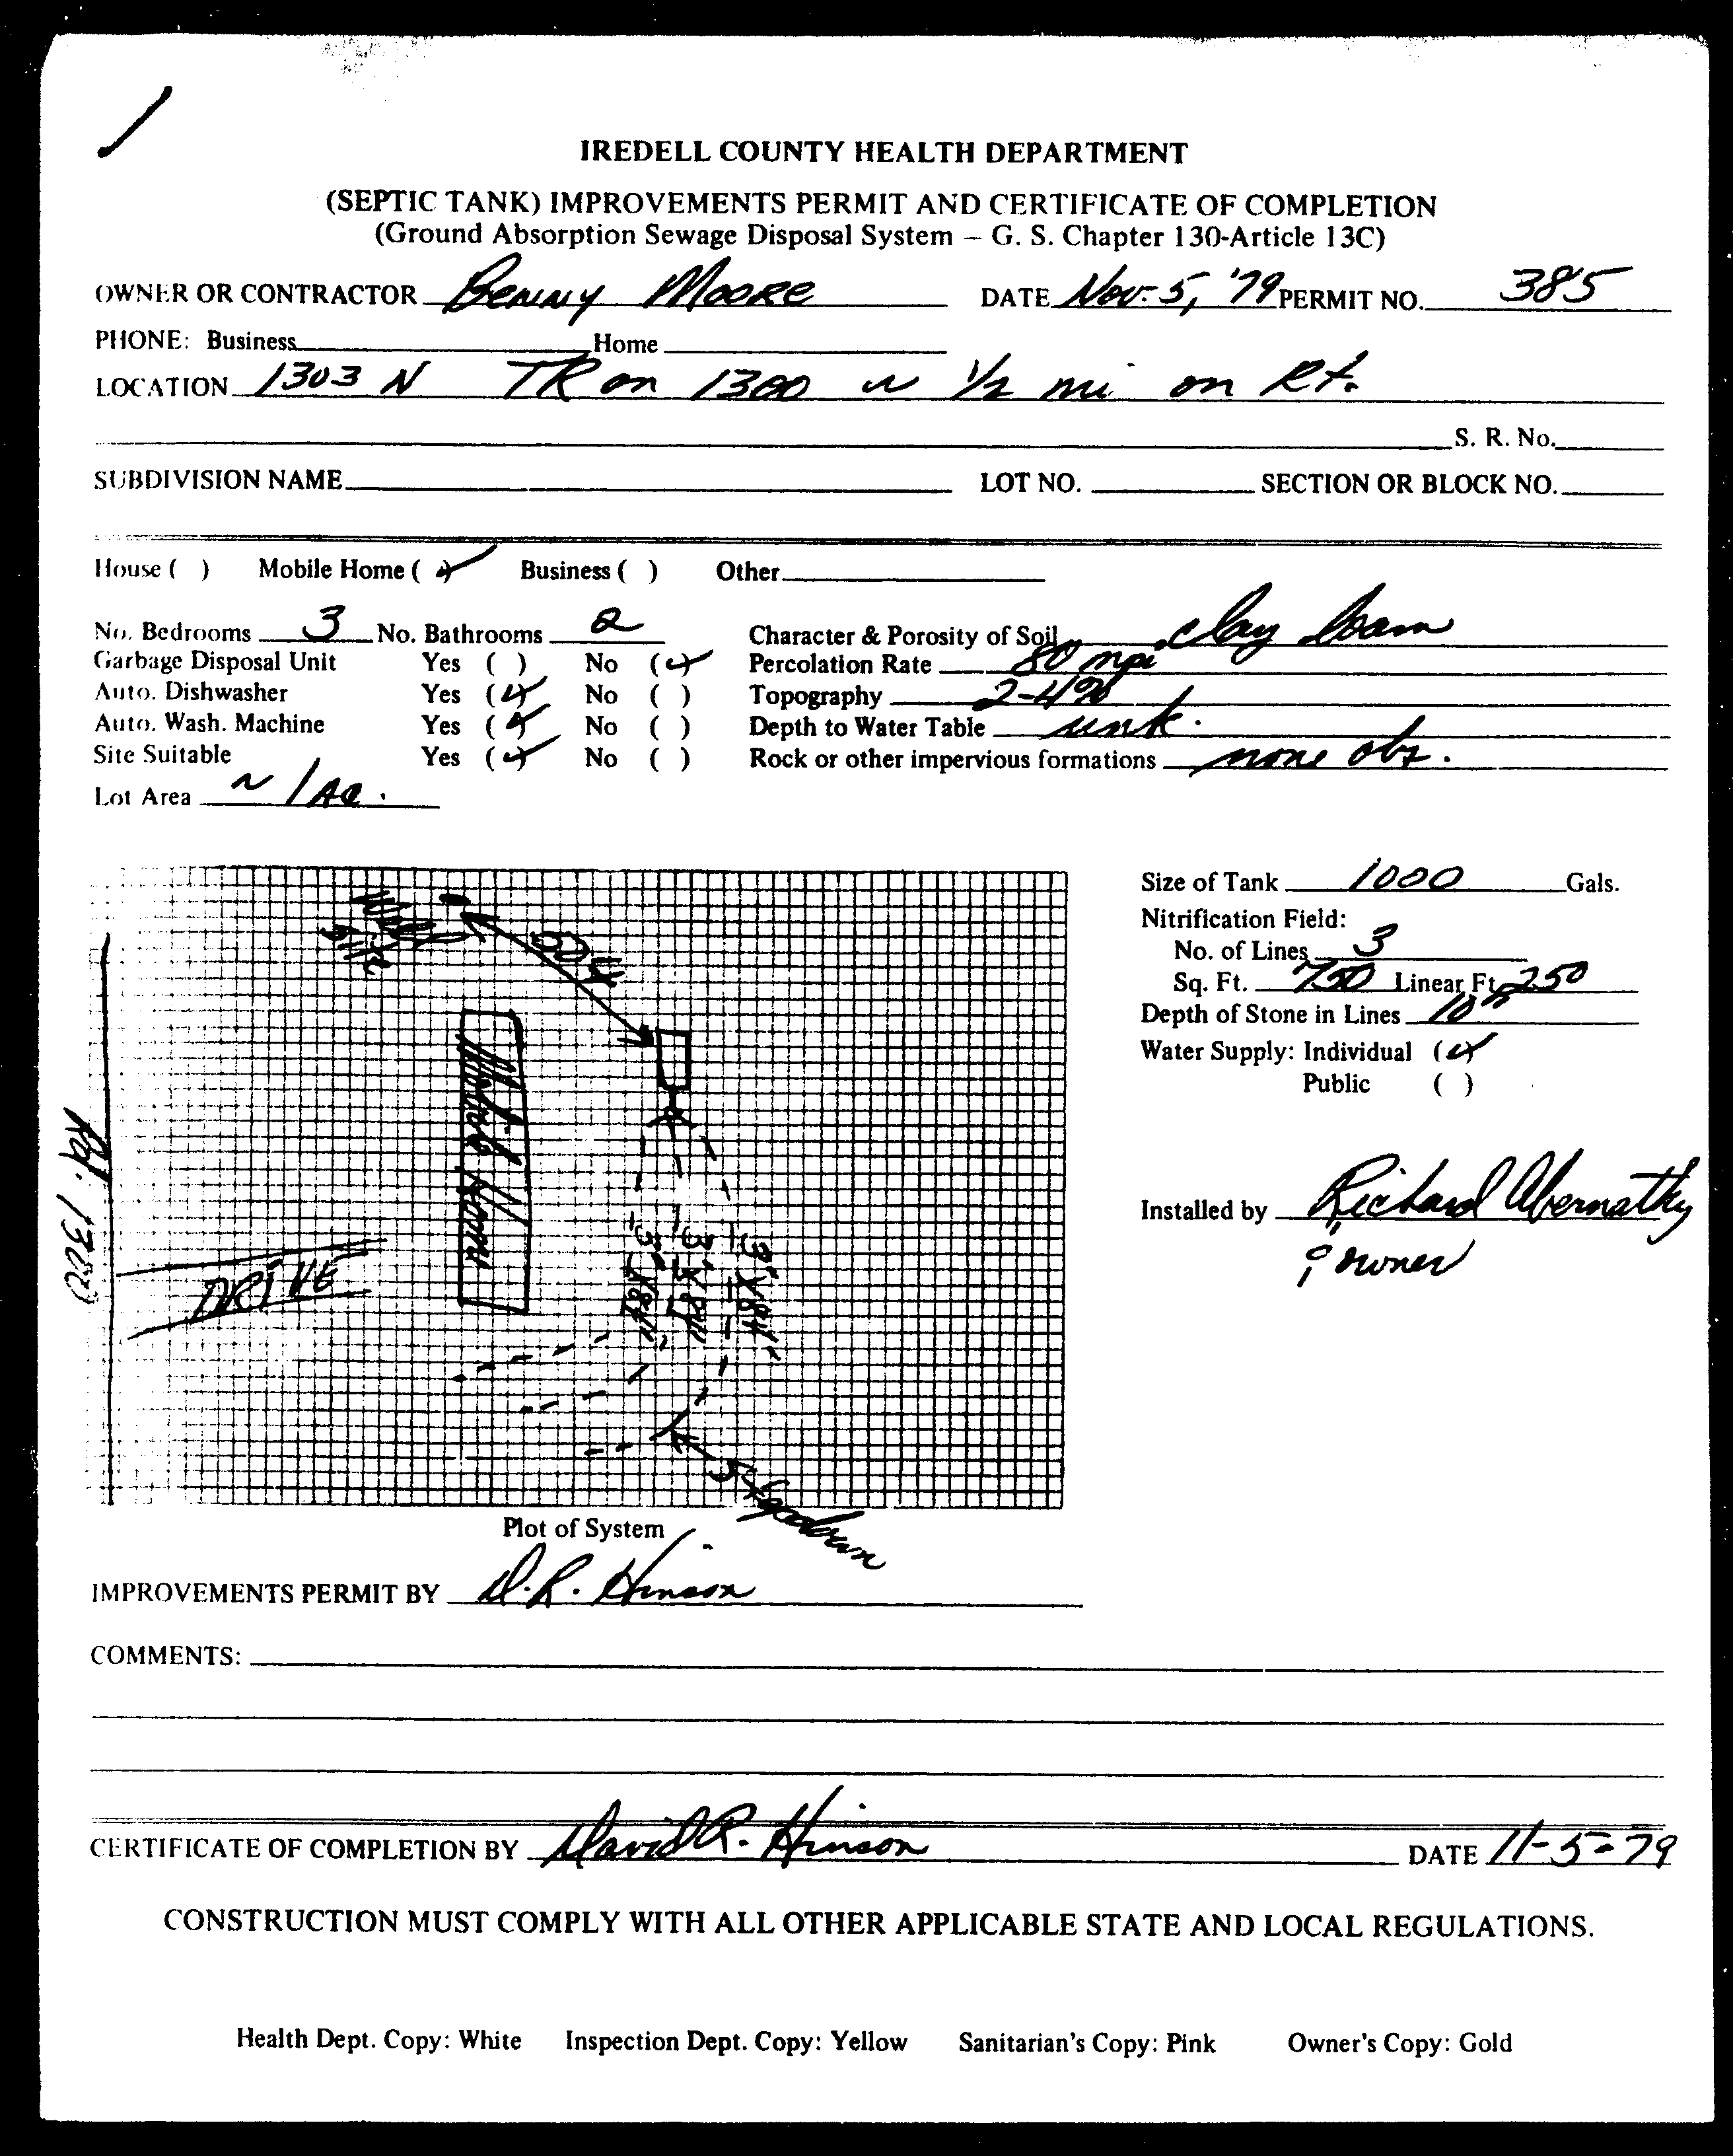 IREDELL COUNTY HEALTH DEPARTMENT
(SEPTIC TANK) IMPROVEMENTS PERMIT AND CERTIFICATE OF COMPLETION
(Ground Absorption Sewage Disposal System – G. S. Chapter 130-Article 13C)
OWNER OR CONTRACTOR Benny Moore DATE Nov. 5, '79 PERMIT NO. 385
PHONE: Business Home
LOCATION 1303 N TR on 1300 ~ 1/2 mi on Rt.
S. R. No.
SUBDIVISION NAME LOT NO. SECTION OR BLOCK NO.
House ( ) Mobile Home (✓) Business ( ) Other
No. Bedrooms 3 No. Bathrooms 2 Character & Porosity of Soil clay loam
Garbage Disposal Unit Yes ( ) No (✓) Percolation Rate 80 mpi
Auto. Dishwasher Yes (✓) No ( ) Topography 2-4%
Auto. Wash. Machine Yes (✓) No ( ) Depth to Water Table unk.
Site Suitable Yes (✓) No ( ) Rock or other impervious formations none obs.
Lot Area ~ 1 Ac.
Size of Tank 1000 Gals.
Nitrification Field:
No. of Lines 3
Sq. Ft. 750 Linear Ft. 250
Depth of Stone in Lines 10"
Water Supply: Individual (✓)
Public ( )
Installed by Richard Abernathy
& owner
Well
site
Mobile Home
Rd. 1300
DRIVE
3' X 84'
3' X 84'
3' X 84'
Plot of System
IMPROVEMENTS PERMIT BY D.R. Hinson
COMMENTS:
CERTIFICATE OF COMPLETION BY David R. Hinson DATE 11-5-79
CONSTRUCTION MUST COMPLY WITH ALL OTHER APPLICABLE STATE AND LOCAL REGULATIONS.
Health Dept. Copy: White Inspection Dept. Copy: Yellow Sanitarian's Copy: Pink Owner's Copy: Gold